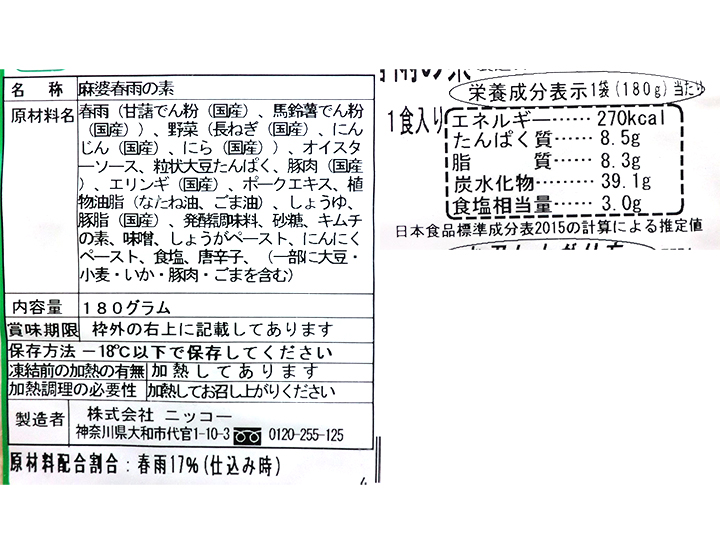 名 称 麻婆春雨の素
原材料名 春雨（甘藷でん粉（国産）、馬鈴薯でん粉
（国産））、野菜（長ねぎ（国産）、にん
じん（国産）、にら（国産））、オイスタ
ーソース、粒状大豆たんぱく、豚肉（国産
）、エリンギ（国産）、ポークエキス、植
物油脂（なたね油、ごま油）、しょうゆ、
豚脂（国産）、発酵調味料、砂糖、キムチ
の素、味噌、しょうがペースト、にんにく
ペースト、食塩、唐辛子、（一部に大豆・
小麦・いか・豚肉・ごまを含む）
内容量 １８０グラム
賞味期限 枠外の右上に記載してあります
保存方法 －18℃以下で保存してください
凍結前の加熱の有無 加熱してあります
加熱調理の必要性 加熱してお召し上がりください
製造者 株式会社 ニッコー
神奈川県大和市代官1-10-3 0120-255-125
原材料配合割合：春雨17%(仕込み時)
栄養成分表示1袋(180g)当たり
1食入り
エネルギー……270kcal
たんぱく質…… 8.5g
脂 質…… 8.3g
炭水化物……… 39.1g
食塩相当量…… 3.0g
日本食品標準成分表2015の計算による推定値